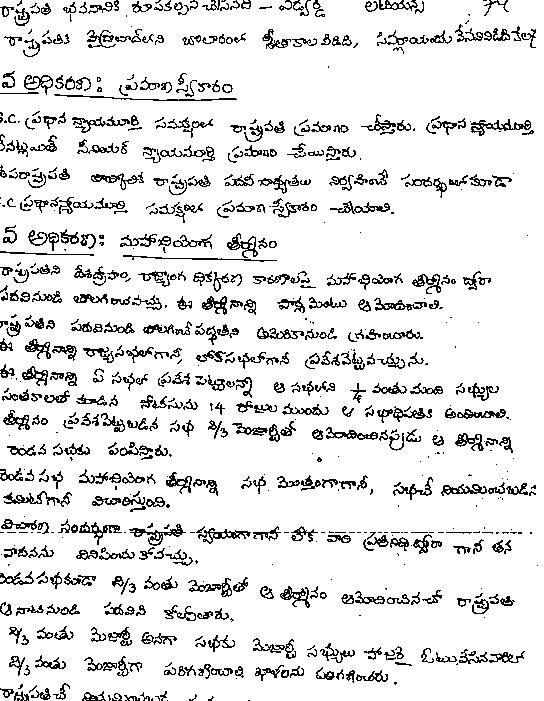 రాష్ట్రపతి భవనానికి రూపకల్పన చేసినది - ఎడ్వర్డ్ లుటియన్స్
రాష్ట్రపతికి హైద్రాబాద్‌లోని బొలారంలో శీతాకాల విడిది, సిమ్లాయందు వేసవివిడిది కలవు
వ అధికరణ : ప్రమాణ స్వీకారం
S.C. ప్రధాన న్యాయమూర్తి సమక్షంలో రాష్ట్రపతి ప్రమాణం చేస్తారు. ప్రధాన న్యాయమూర్తి
లేనట్లయితే సీనియర్ న్యాయమూర్తి ప్రమాణం చేయిస్తారు.
ఉపరాష్ట్రపతి తాత్కాలిక రాష్ట్రపతి పదవీ బాధ్యతలు నిర్వహించే సందర్భంలో కూడా
S.C ప్రధానన్యాయమూర్తి సమక్షంలో ప్రమాణ స్వీకారం చేయాలి.
వ అధికరణ: మహాభియోగ తీర్మానం
రాష్ట్రపతిని దేశద్రోహం, రాజ్యాంగ ధిక్కరణ కారణాలపై మహాభియోగ తీర్మానం ద్వారా
పదవినుండి తొలగించవచ్చు. ఈ తీర్మానాన్ని పార్లమెంటు ఆమోదించాలి.
రాష్ట్రపతిని పదవినుండి తొలగించే పద్ధతిని అమెరికానుండి గ్రహించారు.
ఈ తీర్మానాన్ని రాజ్యసభలోగాని, లోక్‌సభలోగాని ప్రవేశపెట్టవచ్చును.
ఈ తీర్మానాన్ని ఏ సభలో ప్రవేశ పెట్టాలన్నా ఆ సభలోని 1/4 వంతు మంది సభ్యుల
సంతకాలతో కూడిన నోటీసును 14 రోజుల ముందు ఆ సభాధిపతికి అందించాలి.
తీర్మానం ప్రవేశపెట్టబడిన సభ 2/3 మెజార్టీతో ఆమోదించినప్పుడు ఆ తీర్మానాన్ని
రెండవ సభకు పంపిస్తారు.
రెండవ సభ మహాభియోగ తీర్మానాన్ని సభ మొత్తంగాగానీ, సభచే నియమించబడిన
కమిటీగానీ విచారిస్తుంది.
విచారణ సందర్భంగా రాష్ట్రపతి స్వయంగాగానీ లేక వారి ప్రతినిధి ద్వారా గానీ తన
వాదనను వినిపించు కోవచ్చు.
రెండవసభకూడా 2/3 వంతు మెజార్టీతో ఆ తీర్మానం ఆమోదించినచో రాష్ట్రపతి
ఆనాటినుండి పదవిని కోల్పోతారు.
2/3 వంతు మెజార్టీ అనగా సభకు మెజార్టీ సభ్యులు హాజరై ఓటు వేసినవారిలో
2/3 వంతు మెజార్టీగా పరిగణించాలి ఖాళీలను పరిగణించరు.
రాష్ట్రపతిచే